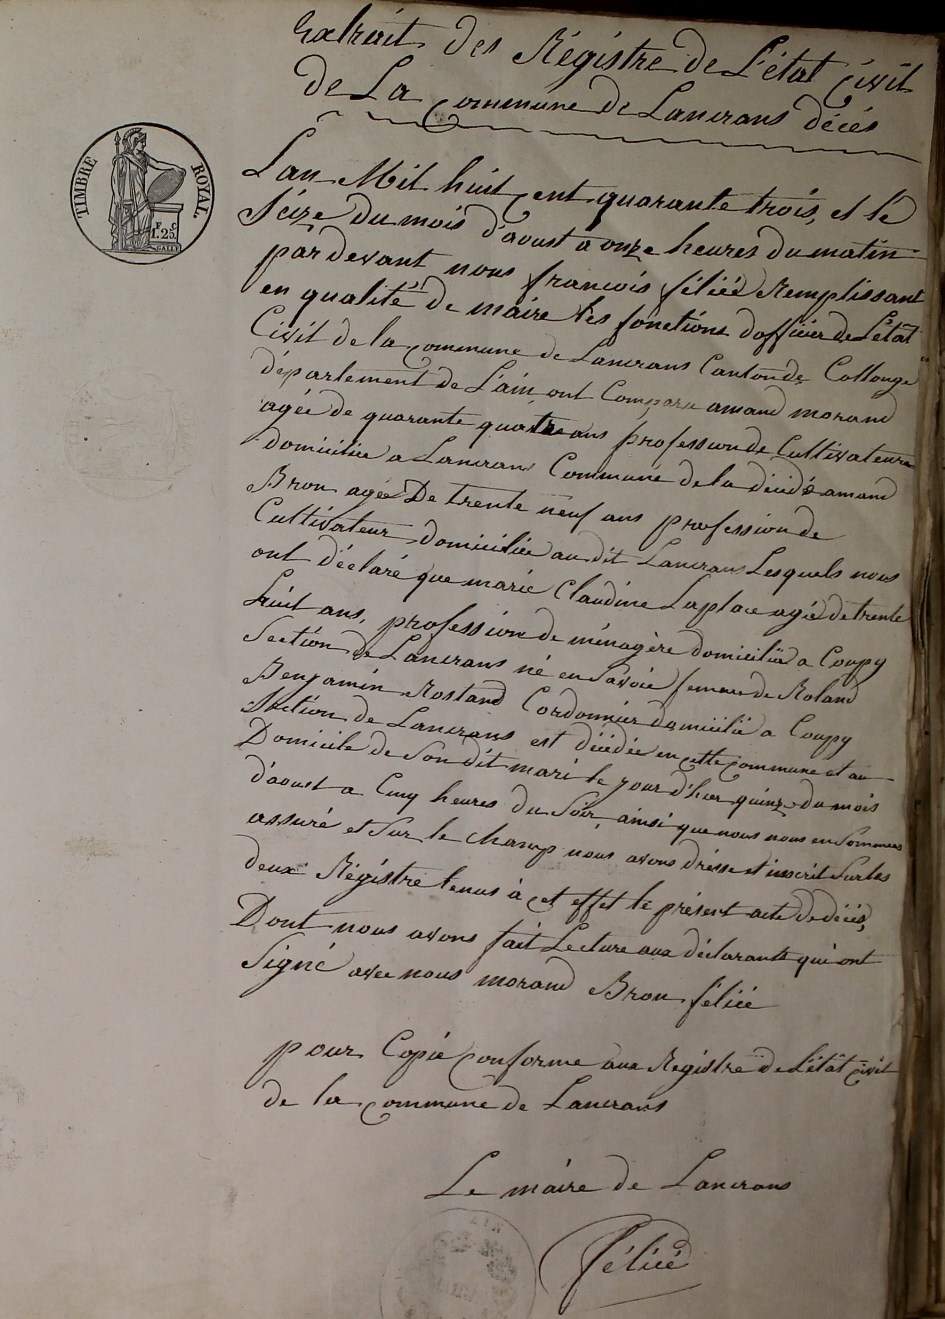 Extrait des Régistre de L'état Civil
de La Commune de Lancrans décés
TIMBRE ROYAL.
F. C.
1.25.
Lan Mil huit Cent quarante trois, et le
Seize du mois d'aoust a onze heures du matin
par devant nous françois féliée Remplissant
en qualité de maire les fonctions d'officier de L'état
Civil de la Commune de Lancrans Canton de Collonge
département de L'ain ont Comparu amand morand
agée de quarante quatre ans profession de Cultivateur
domiciliée a Lancrans Commune de la décidé amand
Bron agée De trente neuf ans profession de
Cultivateur domiciliée au dit Lancrans Lesquels nous
ont déclaré que marie Claudine Laplace agée de trente
huit ans, profession de ménagère domiciliä a Coupy
Section de Lancrans né en Savoie femme de Roland
Benjamin Rostand Cordonnier domiciliä a Coupy
Section de Lancrans est décédée en cette Commune et au
Domicile de Son dit mari le jour d'hier quinze du mois
d'aoust a Cinq heures du Soir, ainsi que nous nous en Sommes
assuré et Sur le champ nous avons drésse et inscrit Sur les
deux Régistre tenus à cet effet le présent acte de décés,
Dont nous avons fait Lecture aux déclarants qui ont
Signé avec nous morand Bron féliée
pour Copie Conforme aux Régistre de L'état Civil
de la Commune de Lancrans
Le maire de Lancrans
féliée